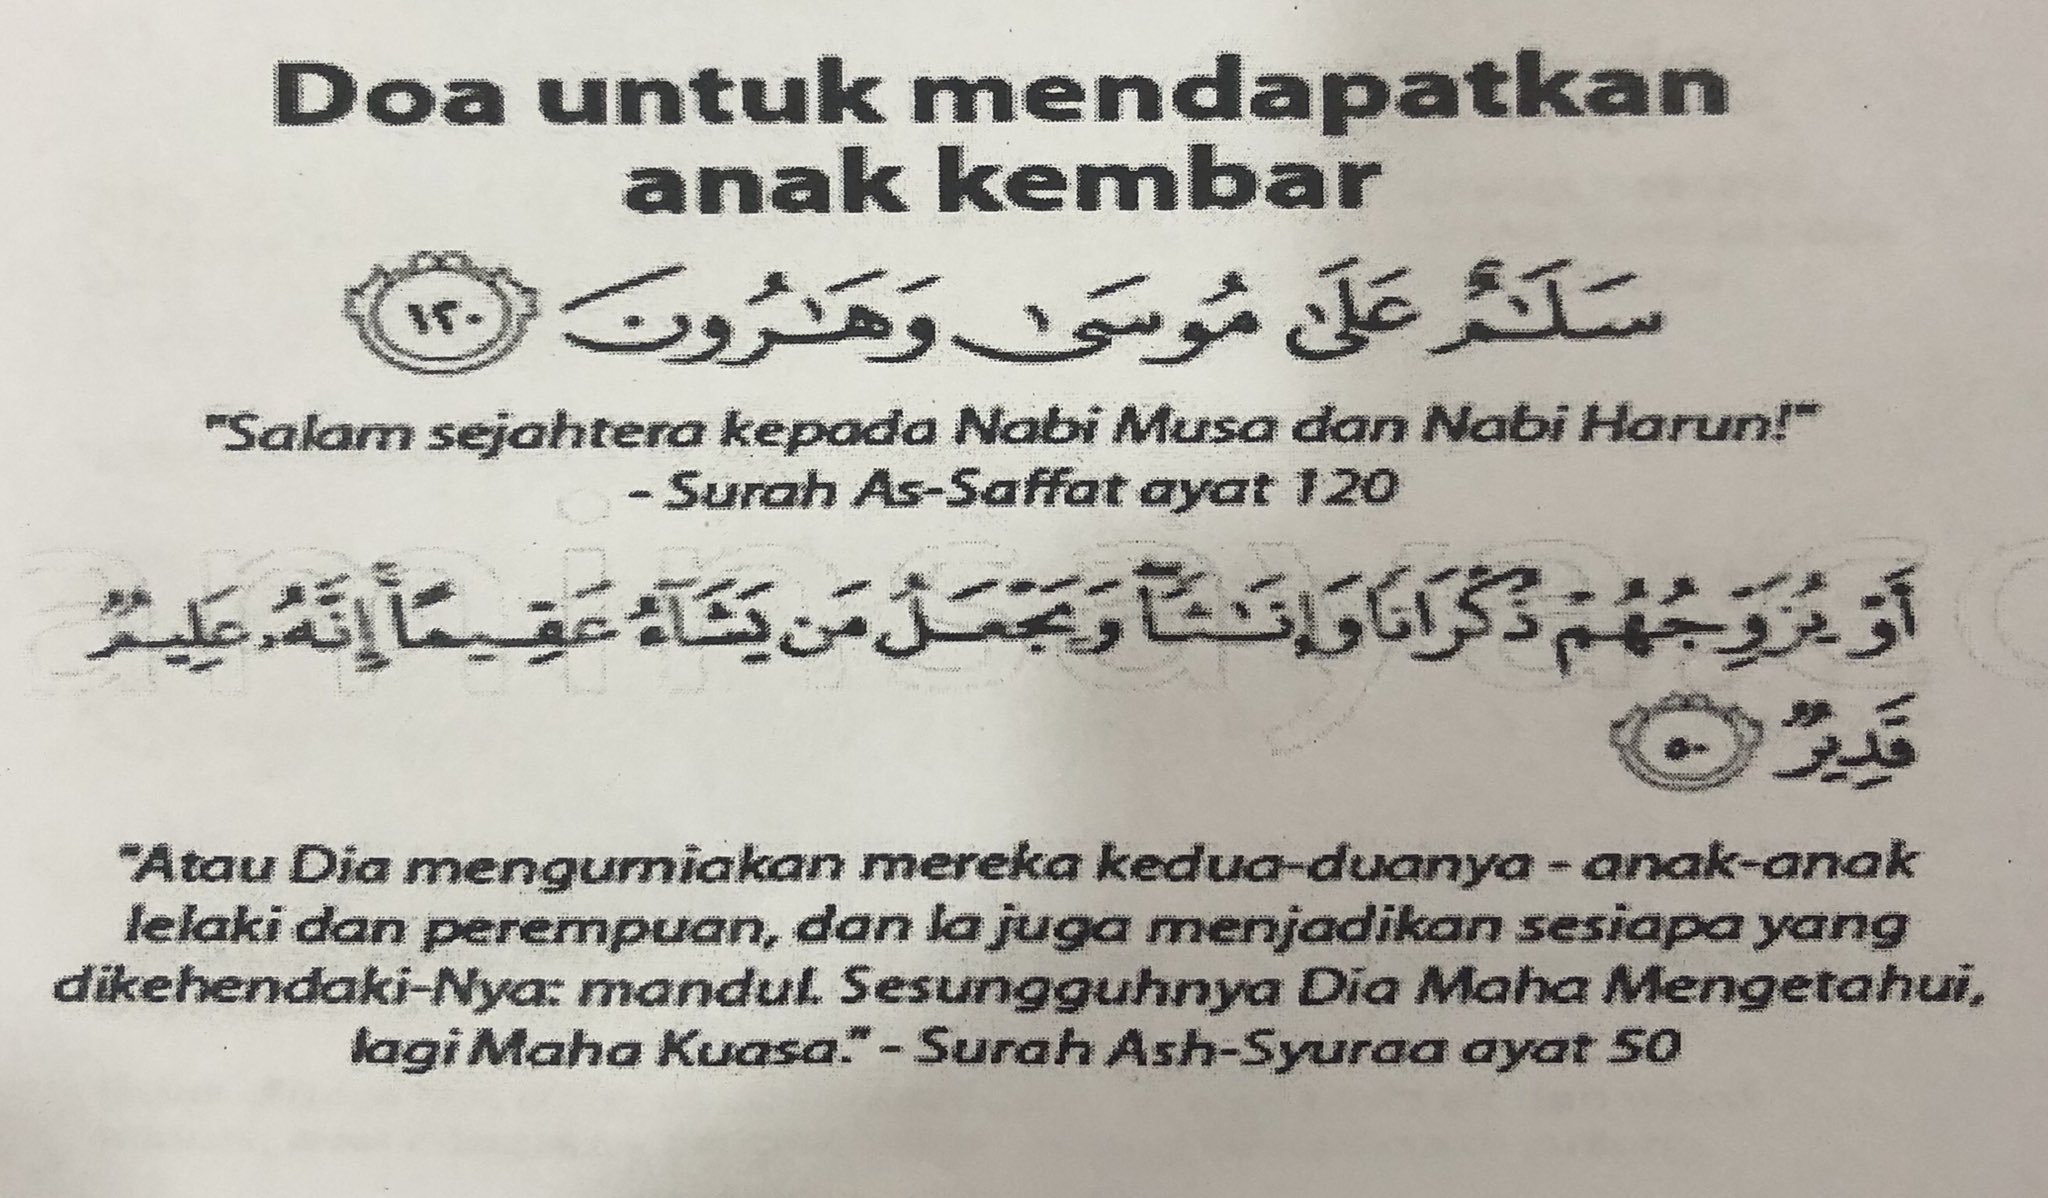 Doa untuk mendapatkan
anak kembar
سَلَـٰمٌ عَلَىٰ مُوسَىٰ وَهَـٰرُونَ ١٢٠
"Salam sejahtera kepada Nabi Musa dan Nabi Harun!"
- Surah As-Saffat ayat 120
أَوْ يُزَوِّجُهُمْ ذُكْرَانًا وَإِنَـٰثًا ۖ وَيَجْعَلُ مَن يَشَآءُ عَقِيمًا ۚ إِنَّهُۥ عَلِيمٌ
قَدِيرٌ ٥٠
"Atau Dia mengurniakan mereka kedua-duanya - anak-anak
lelaki dan perempuan, dan Ia juga menjadikan sesiapa yang
dikehendaki-Nya: mandul. Sesungguhnya Dia Maha Mengetahui,
lagi Maha Kuasa." - Surah Ash-Syuraa ayat 50